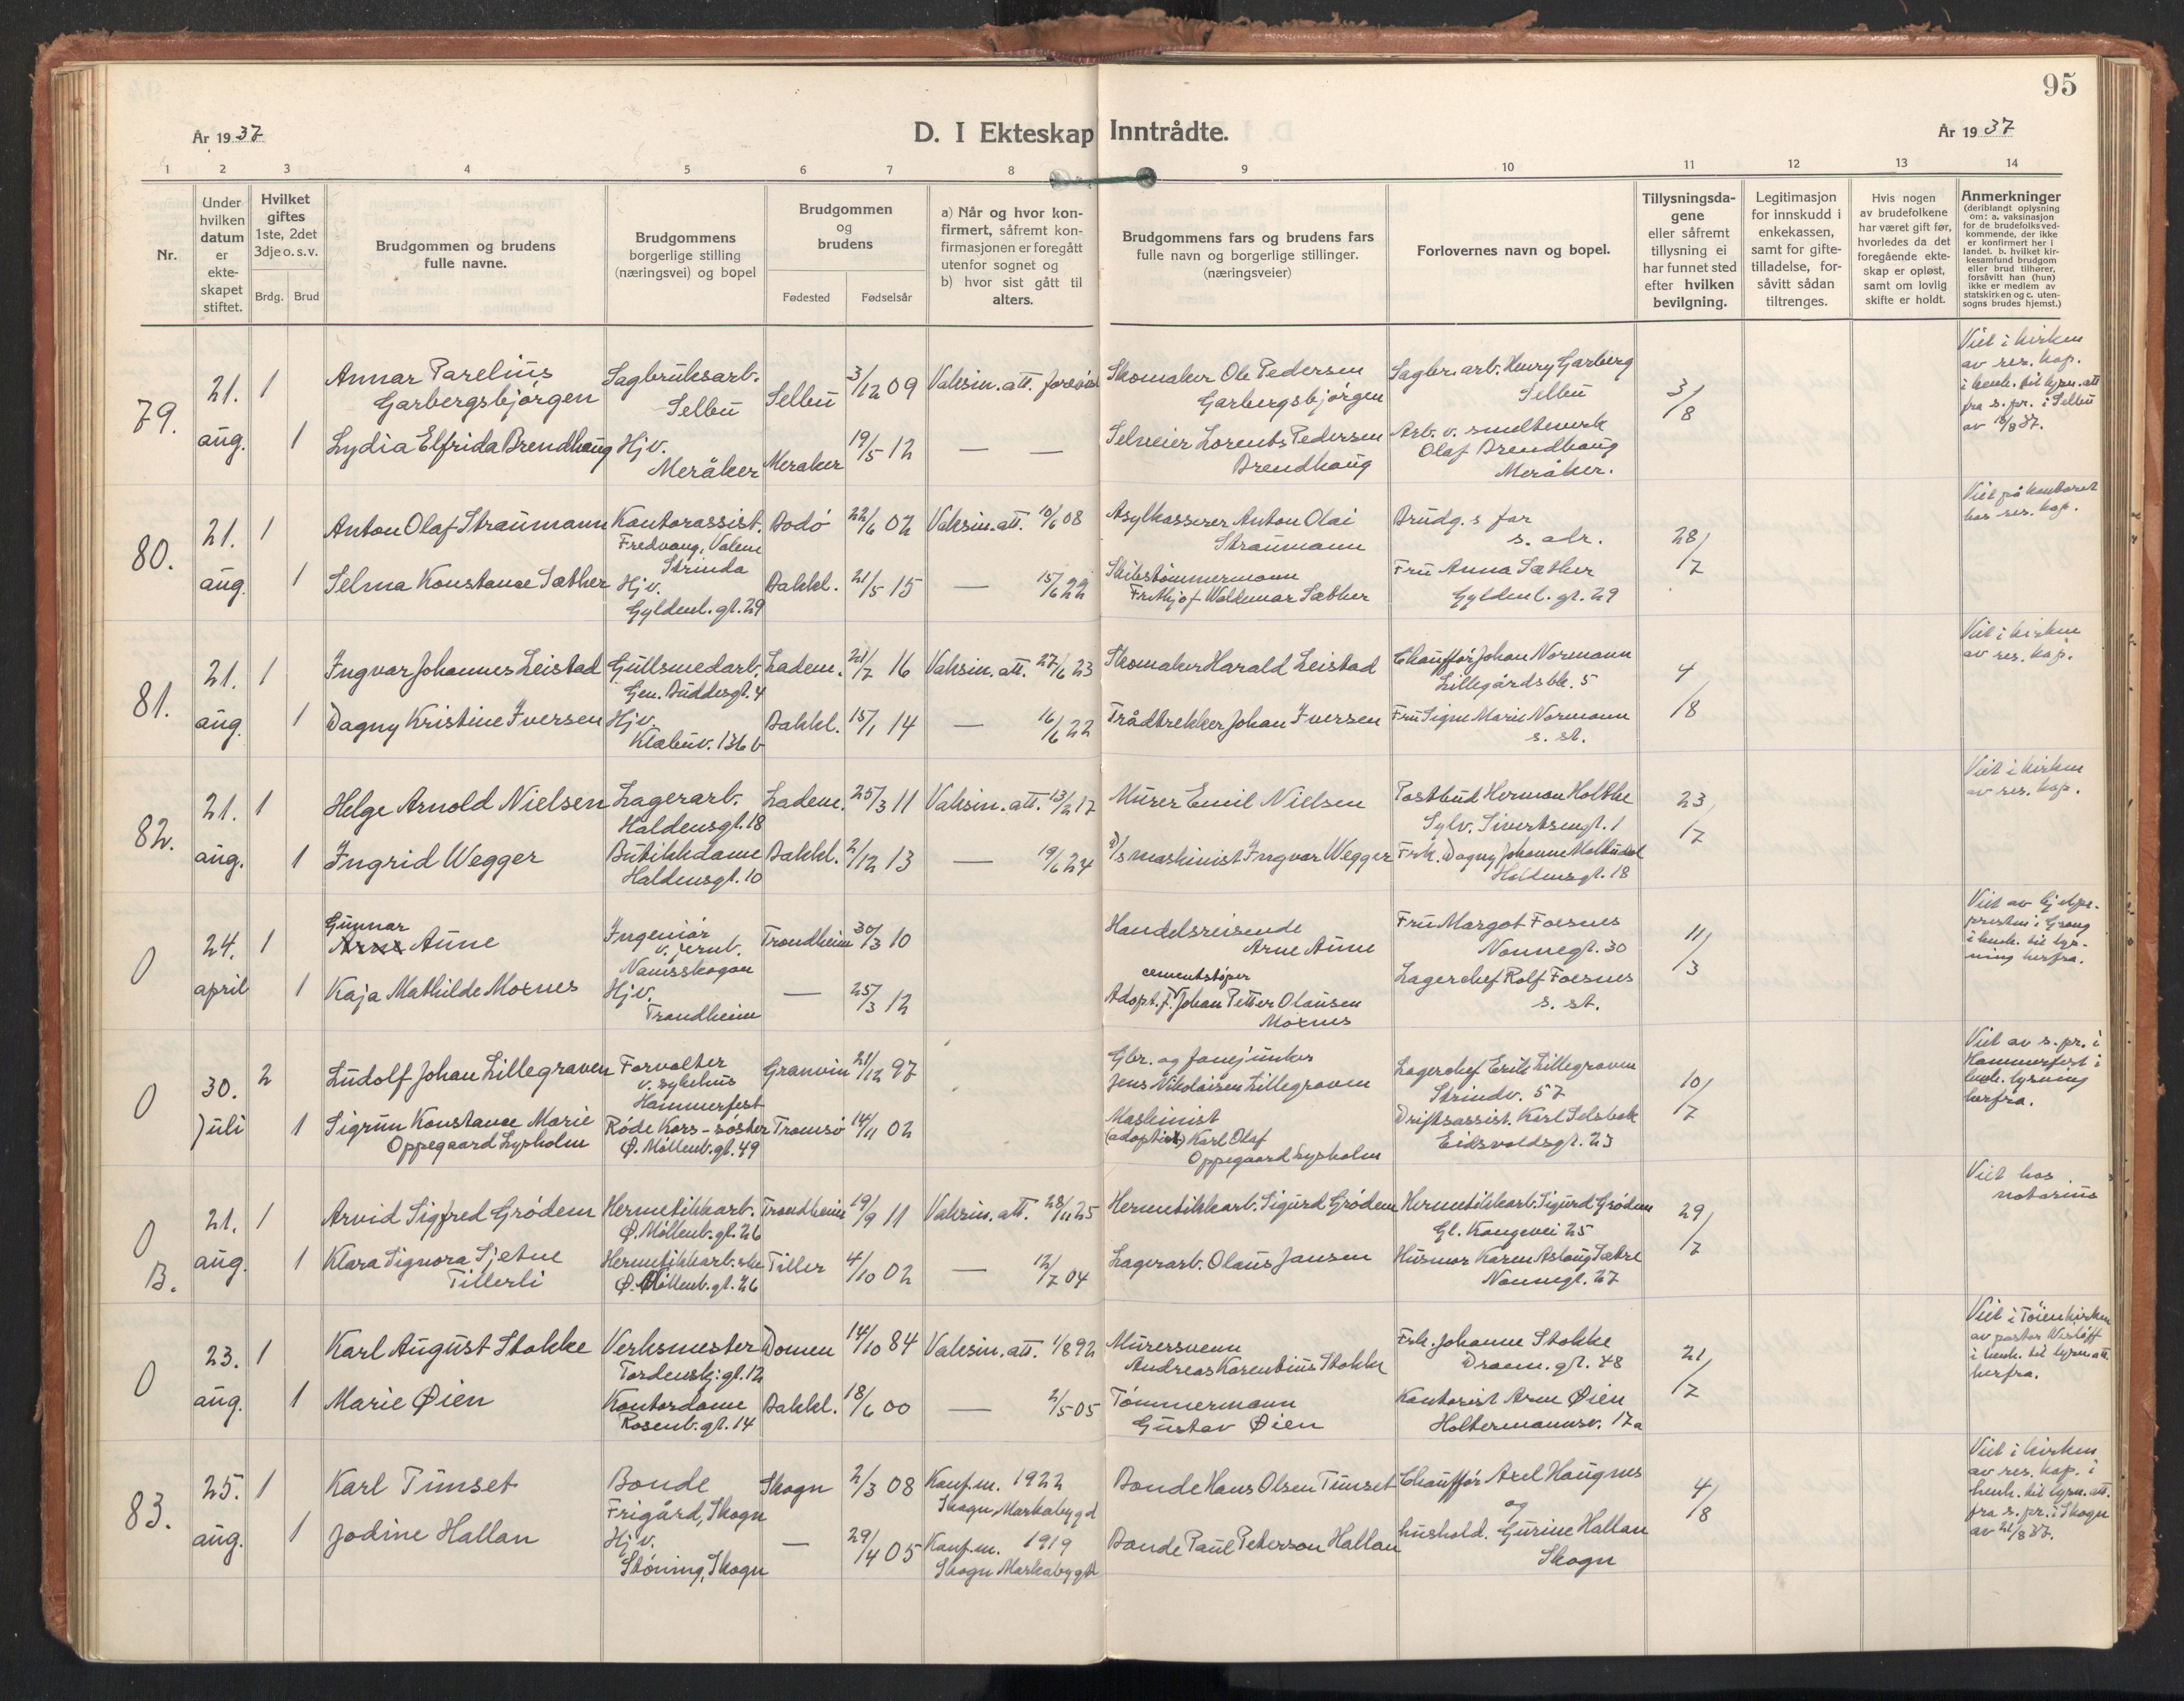 95
År 1937
D. I Ekteskap Inntrådte.
År 1937
1 2 3 4 5 6 7 8 9 10 11 12 13 14
Nr.
Under hvilken datum er ekte-skapet stiftet.
Hvilket giftes 1ste, 2det 3dje o. s. v.
Brdg. Brud
Brudgommen og brudens fulle navne.
Brudgommens borgerlige stilling (næringsvei) og bopel
Brudgommen og brudens
Fødested Fødselsår
a) Når og hvor kon-firmert, såfremt kon-firmasjonen er foregått utenfor sognet og b) hvor sist gått til alters.
Brudgommens fars og brudens fars fulle navn og borgerlige stillinger. (næringsveier)
Forlovernes navn og bopel.
Tillysningsda-gene eller såfremt tillysning ei har funnet sted efter hvilken bevilgning.
Legitimasjon for innskudd i enkekassen, samt for gifte-tilladelse, for-såvitt sådan tiltrenges.
Hvis nogen av brudefolkene har været gift før, hvorledes da det foregående ekte-skap er opløst, samt om lovlig skifte er holdt.
Anmerkninger (deriblandt oplysning om: a. vaksinasjon for de brudefolksved-kommende, der ikke er konfirmert her i landet. b. hvilket kir-kesamfund brudgom eller brud tilhører, forsåvitt han (hun) ikke er medlem av statskirken og c. uten-sogns brudes hjemst.)
79. 21. aug. 1
Annar Parelius Garbergsbjørgen
Sagbruksarb. Selbu
Selbu 3/12 09 Vaksin. att. forevist
Skomaker Ole Pedersen Garbergsbjørgen
Sagbr.arb. Henry Garberg Selbu
3/8
Viet i kirken av res. kap. i henh. til lysn. att fra s. pr. i Selbu av 18/8 37.
1 Lydia Elfrida Brendhaug
Hjv. Meråker
Meraker 19/5 12 — —
Selveier Lorents Pedersen Brendhaug
Arb. v. smelteverk Olaf Brendhaug Meråker.
80. 21. aug. 1
Anton Olaf Straumann
Kontorassist. Fredvang, Valene Strinda
Bodø 22/6 02 Vaksin. att. 10/6 08
Asylkasserer Anton Olai Straumann
Brudg.s far s. adr.
28/7
Viet på kontoret hos res. kap.
1 Selma Konstance Sæther
Hjv. Gyldenl. gt. 29
Bakkl. 21/5 15 — 15/6 22
Skibstømmermann Frithjof Waldemar Sæther
Fru Anna Sæther Gyldenl. gt. 29
81. 21. aug. 1
Ingvar Johannes Leistad
Gullsmedarb. Gen. Buddesgt. 4
Ladem. 21/7 16 Vaksin. att. 27/6 23
Skomaker Harald Leistad
Chauffør Johan Normann Lillegårdsbk. 5
4/8
Viet i kirken av res. kap.
1 Dagny Kristine Iversen
Hjv. Klæbuv. 136 b
Bakkl. 15/1 14 — 16/6 22
Trådtrekker Johan Iversen
Fru Signe Marie Normann s. st.
82. 21. aug. 1
Helge Arnold Nielsen
Lagerarb. Haldensgt. 18
Ladem. 25/3 11 Vaksin. att. 13/2 17
Murer Emil Nielsen
Postbud Herman Holthe Sylv. Sivertsengt. 1
23/7
Viet i kirken av res. kap.
1 Ingrid Wegger
Butikkdame Haldensgt. 10
Bakkl. 2/12 13 — 19/6 24
D/s maskinist Ingvar Wegger
Frk. Dagny Johanne Haldensgt. 18
0 24. april 1
Gunnar Arne Aune
Ingeniør v. jernb. Namsskogan
Trondheim 30/3 10
Handelsreisende Arne Aune
Fru Margot Foesnes Nonnegt. 30
11/3
Viet av hjelpe-presten i Grong i henh. til lys-ning herfra.
1 Kaja Mathilde Moxnes
Hjv. Trondheim
— 25/3 12
cementstøper
Adopt. f. Johan Petter Olausen Moxnes
Lagerchef Rolf Foesnes s. st.
0 30. juli 2
Ludolf Johan Lillegraven
Forvalter v. sykehus Hammerfest
Granvin 21/12 97
Gbr. og fanejunker Jens Nikolaisen Lillegraven
Lagerchef Erik Lillegraven Strindv. 57
10/7
Viet av s. pr. i Hammerfest i henh. lysning herfra.
1 Sigrun Konstance Marie Oppegaard Lysholm
Røde Kors-søster Ø. Møllenb. gt. 49
Tromsø 14/11 02
Maskinist (adoptiv) Karl Olaf Oppegaard Lysholm
Driftsassist. Karl Selsbak Eidsvoldsgt. 23
0 B. 21. aug. 1
Arvid Sigfred Grødem
Hermetikkarb. Ø. Møllenb. gt. 26
Trondheim 19/9 11 Vaksin. att. 28/11 25
Hermetikkarb. Sigurd Grødem
Hermetikkarb. Sigurd Grødem Gl. Kongevei 25
29/7
Viet hos notarius
1 Klara Signora Sjetne Tillerli
Hermetikkarb.ske Ø. Møllenb. gt. 26
Tiller 4/10 02 — 12/7 04
Lagerarb. Olaus Jansen
Husmor Karen Aslaug Sætre Nonnegt. 27
0 23. aug. 1
Karl August Stokke
Verksmester Tordenskj. gt. 12
Domen 14/10 84 Vaksin. att. 1/8 92
Murersvenn Andreas Korentius Stokke
Frk. Johanne Stokke Dronn. gt. 48
21/7
Viet i Tøienkirken av pastor i henh. til lysn. att. herfra.
1 Marie Øien
Kontordame Rosenb. gt. 14
Bakkl. 18/6 00 — 2/5 05
Tømmermann Gustav Øien
Kontorist Arne Øien Holtermannsv. 17a
83. 25. aug. 1
Karl Tunset
Bonde Frigård, Skogn
Skogn 2/3 08 Konf.m. 1922 Skogn, Markabygd
Bonde Hans Olsen Tunset
Chauffør Axel Haugnes og
4/8
Viet i kirken av res. kap. i henh. til lysn. att. fra s. pr. i Skogn av 21/8 37.
1 Jodine Hallan
Hjv. Støning, Skogn
— 29/4 05 Konf.m. 1919 Skogn Markabygd
Bonde Paul Peterson Hallan
hushold. Gurine Hallan Skogn